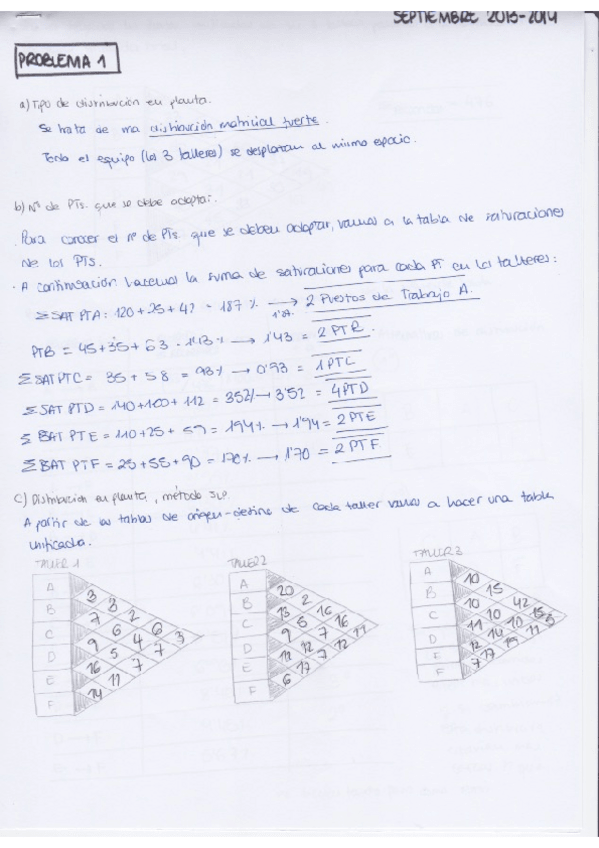 SEPTIEMBRE 2013-2014
PROBLEMA 1
a) Tipo de distribución en planta.
Se trata de una distribución matricial fuerte.
Todo el equipo (los 3 talleres) se desplazan al mismo espacio.
b) Nº de PTs. que se debe adoptar.
· Para conocer el nº de PTs. que se deben adoptar, vamos a la tabla de saturaciones
de los PTs.
· A continuación hacemos la suma de saturaciones para cada PT en los talleres:
Σ SAT PTA: 120+25+42 = 187% → 1'87. 2 Puestos de Trabajo A.
PTB = 45+35+63 = 143% → 1'43 = 2 PTB.
Σ SAT PTC = 35 + 58 = 93% → 0'93 = 1 PTC
Σ SAT PTD = 140+100+112 = 352% → 3'52 = 4 PTD
Σ SAT PTE = 110+25+59 = 194% → 1'94 = 2 PTE
Σ SAT PTF = 25+55+90 = 170% → 1'70 = 2 PTF
C) Distribución en planta, método SLP.
A partir de las tablas de origen-destino de cada taller vamos a hacer una tabla
unificada.
TALLER 1
A
B
C
D
E
F
3
7
9
16
14
8
6
5
11
2
4
7
6
7
3
TALLER 2
A
B
C
D
E
F
20
13
9
11
6
2
6
12
17
16
7
7
16
12
11
TALLER 3
A
B
C
D
E
F
10
10
11
12
7
15
10
14
17
42
10
19
15
11
5